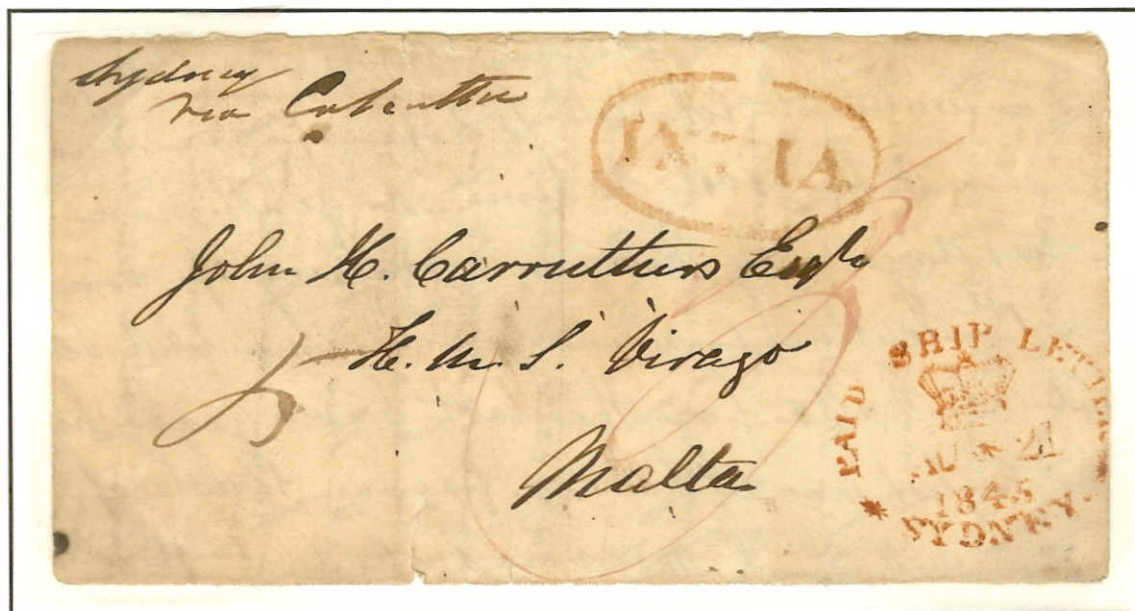 Sydney
via Calcutta
INDIA
John H. Carruthers Esqre
H. M. S. Virago
5
Malta
PAID SHIP LETTER
AU 21
1845
SYDNEY